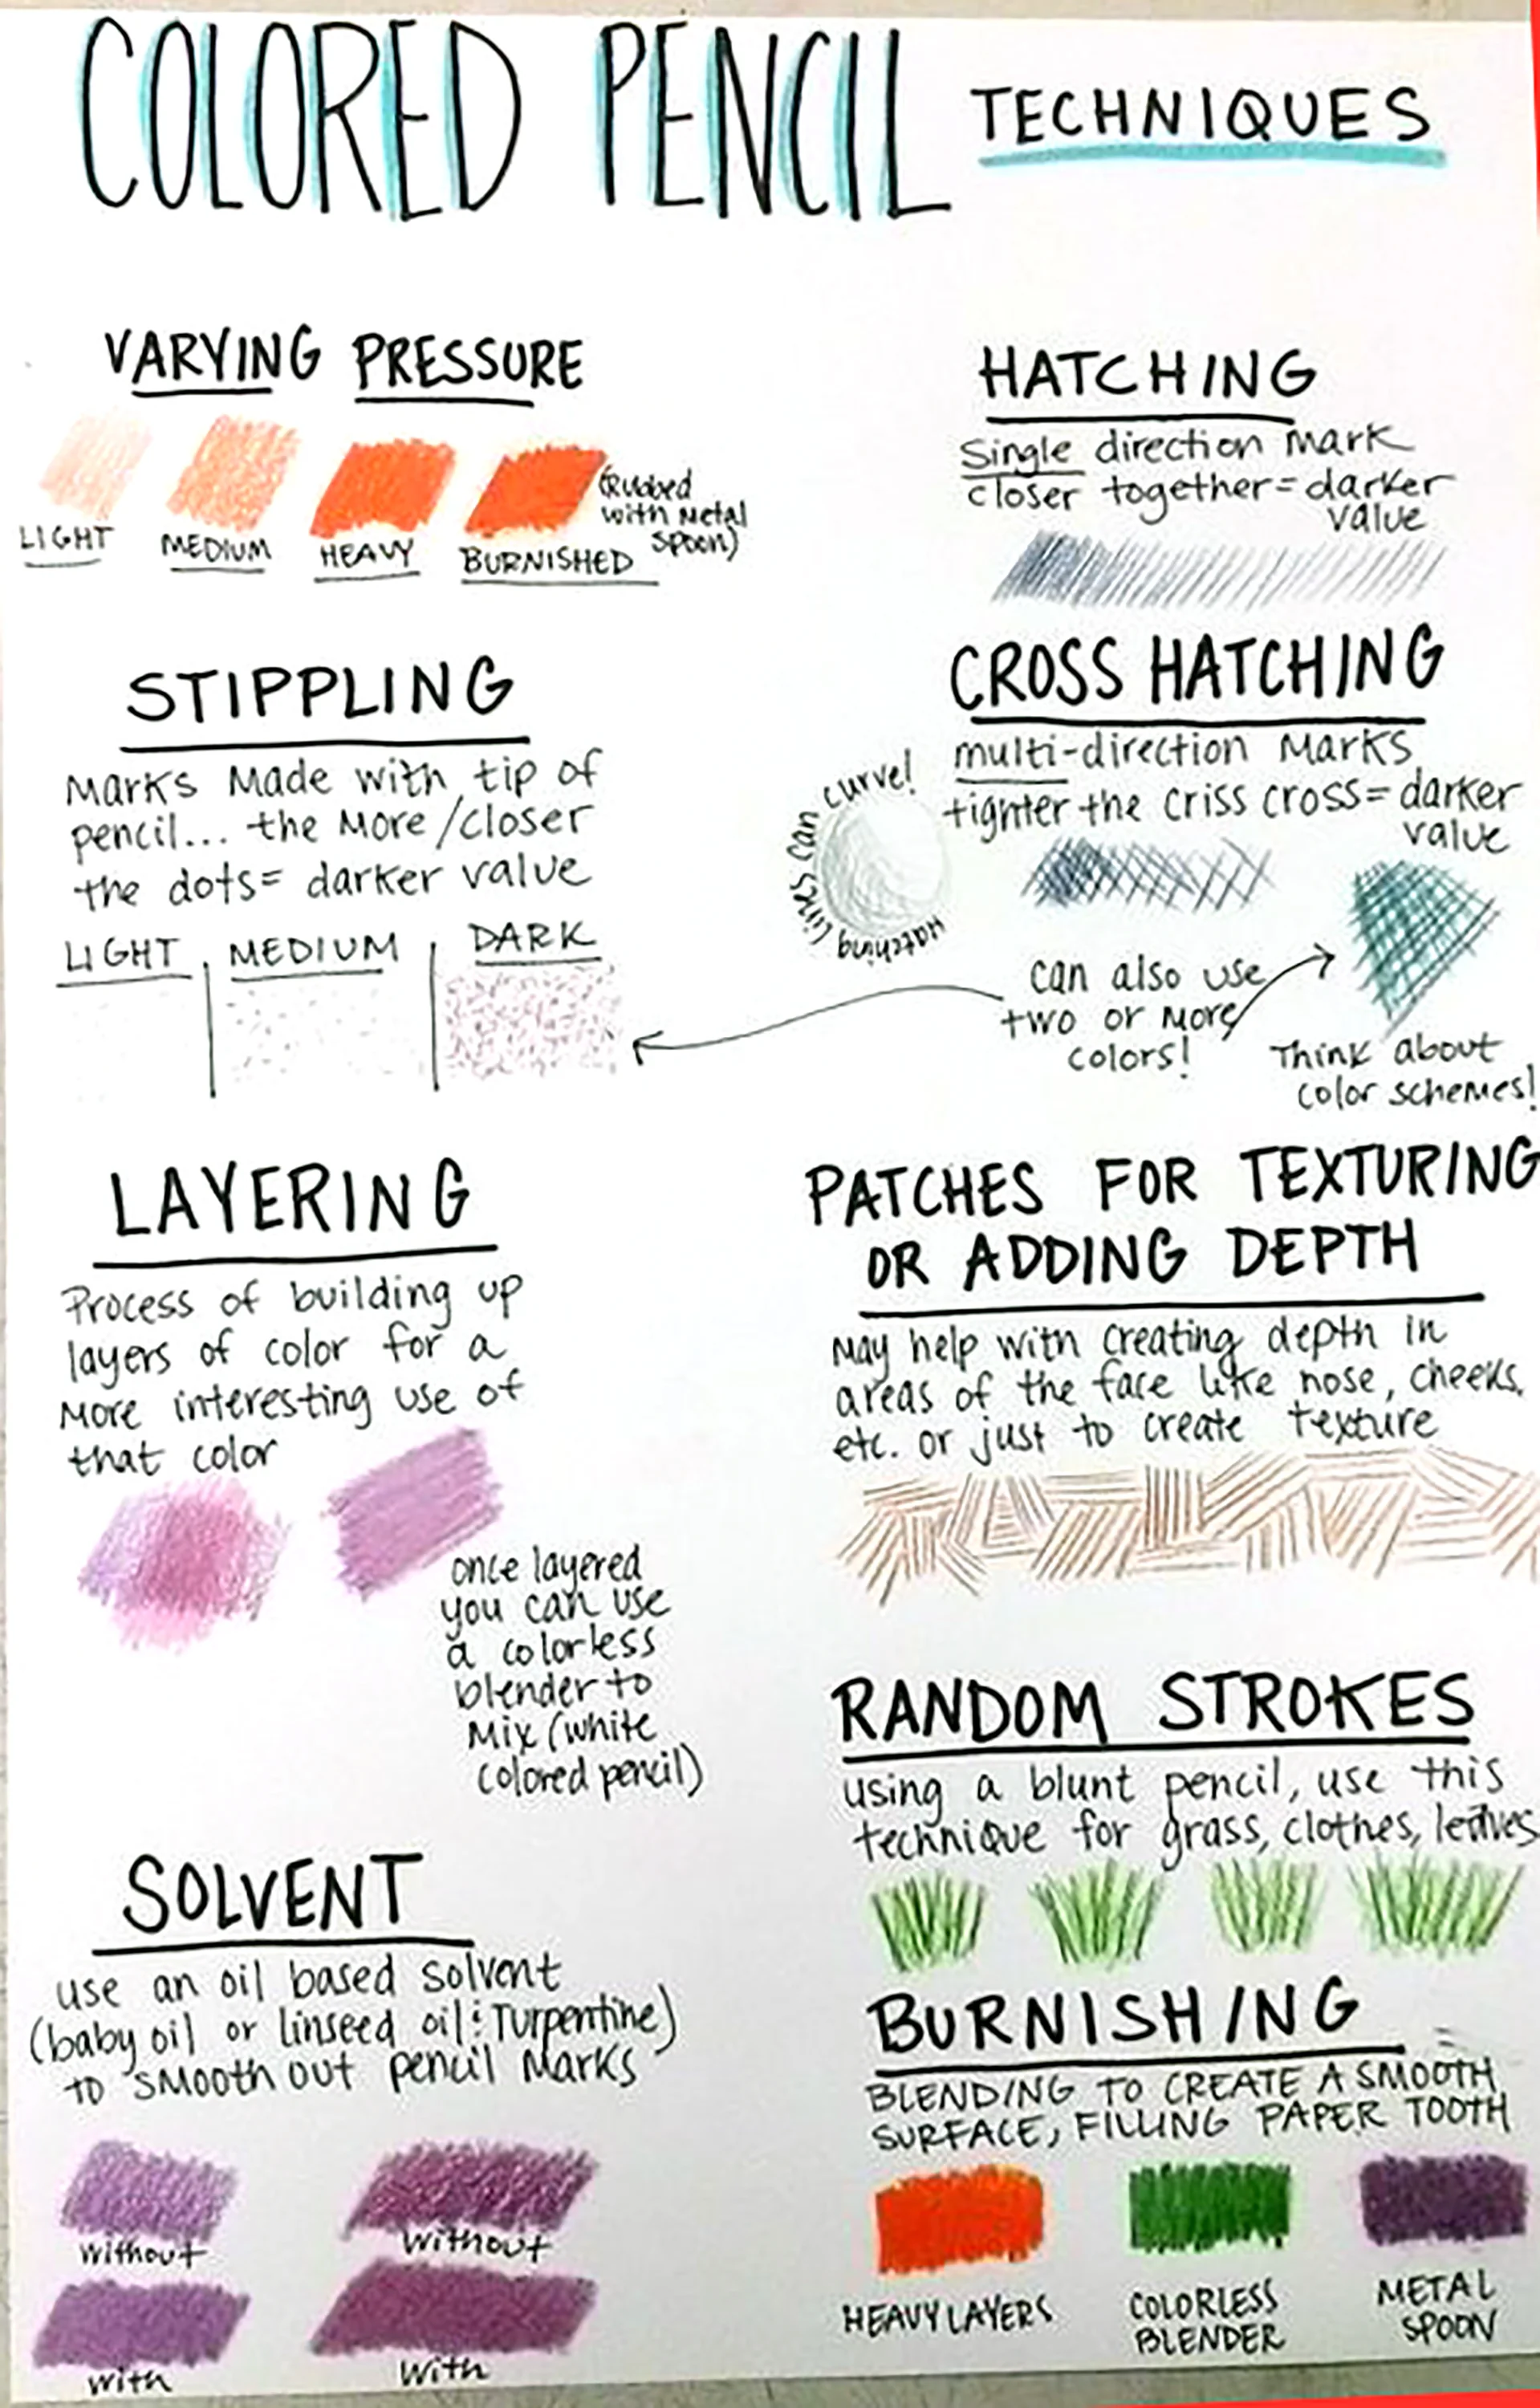 COLORED PENCIL TECHNIQUES
VARYING PRESSURE
LIGHT
MEDIUM
HEAVY
BURNISHED
(Rubbed
with metal
spoon)
STIPPLING
Marks made with tip of
pencil... the more/closer
the dots= darker value
LIGHT
MEDIUM
DARK
LAYERING
Process of building up
layers of color for a
more interesting use of
that color
once layered
you can use
a colorless
blender to
mix (white
colored pencil)
SOLVENT
use an oil based solvent
(baby oil or linseed oil & Turpentine)
to smooth out pencil marks
without
without
with
with
HATCHING
Single direction mark
closer together = darker
value
CROSS HATCHING
multi-direction marks
tighter the criss cross= darker
value
Hatching lines can curve!
can also use
two or more
colors!
Think about
color schemes!
PATCHES FOR TEXTURING
OR ADDING DEPTH
May help with creating depth in
areas of the face like nose, cheeks,
etc. or just to create texture
RANDOM STROKES
using a blunt pencil, use this
technique for grass, clothes, leaves
BURNISHING
BLENDING TO CREATE A SMOOTH
SURFACE, FILLING PAPER TOOTH
HEAVY LAYERS
COLORLESS
BLENDER
METAL
SPOON